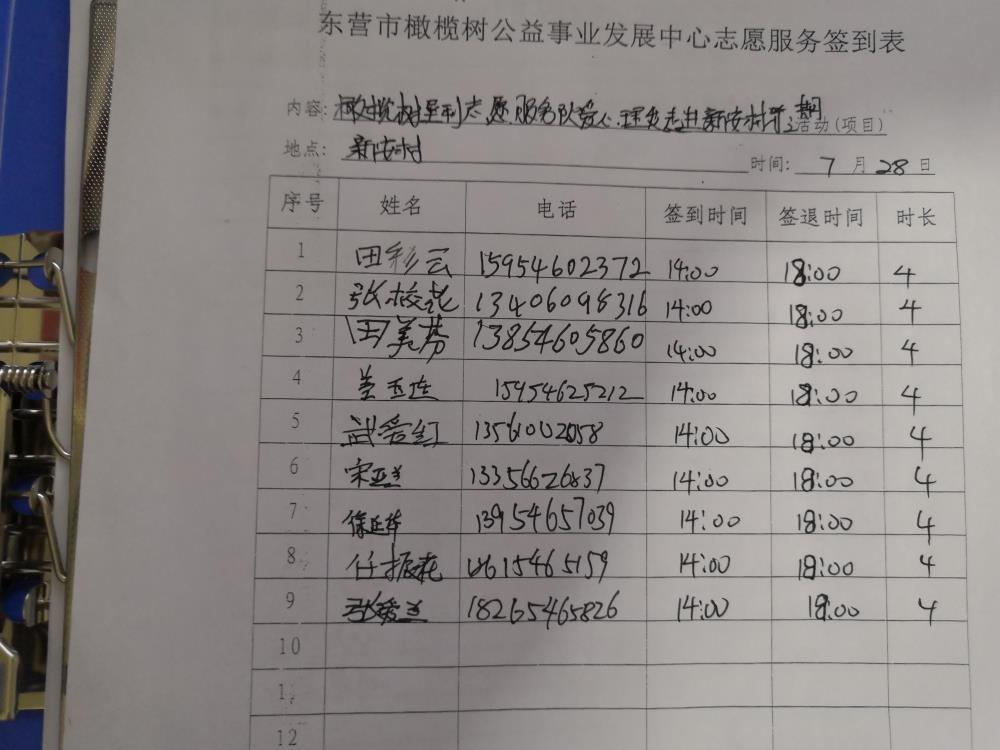 东营市橄榄树公益事业发展中心志愿服务签到表
内容: 橄榄树星利志愿服务队爱心理发走进新安村 期活动(项目)
地点: 新安村 时间: 7月28日
序号 姓名 电话 签到时间 签退时间 时长
1 田彩云 15954602372 14:00 18:00 4
2 张校花 13406098316 14:00 18:00 4
3 田美芬 13854605860 14:00 18:00 4
4 姜玉连 15954625212 14:00 18:00 4
5 武爱红 13561002058 14:00 18:00 4
6 宋亚兰 13356626837 14:00 18:00 4
7 徐延华 13954657039 14:00 18:00 4
8 任振花 14:00 18:00 4
9 张爱兰 18265465826 14:00 18:00 4
10
12